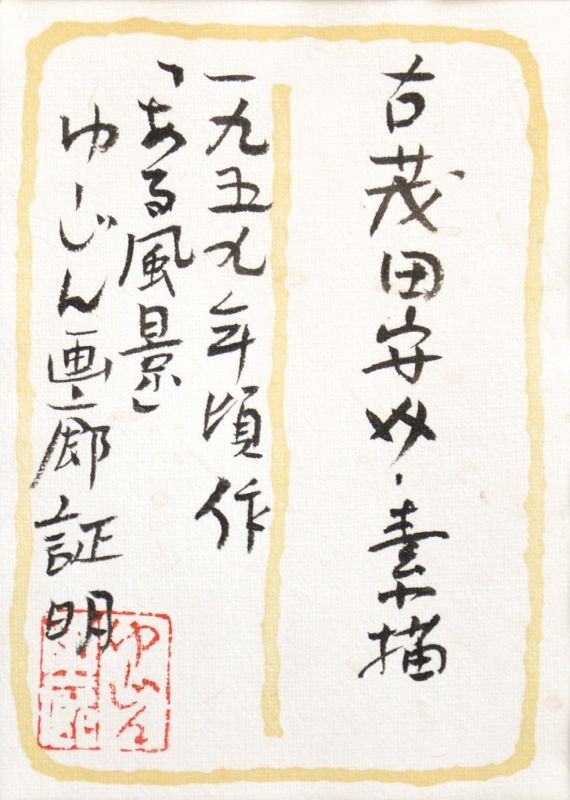 古茂田守介・素描
一九五九年頃作
「ある風景」
ゆーじん画廊証明